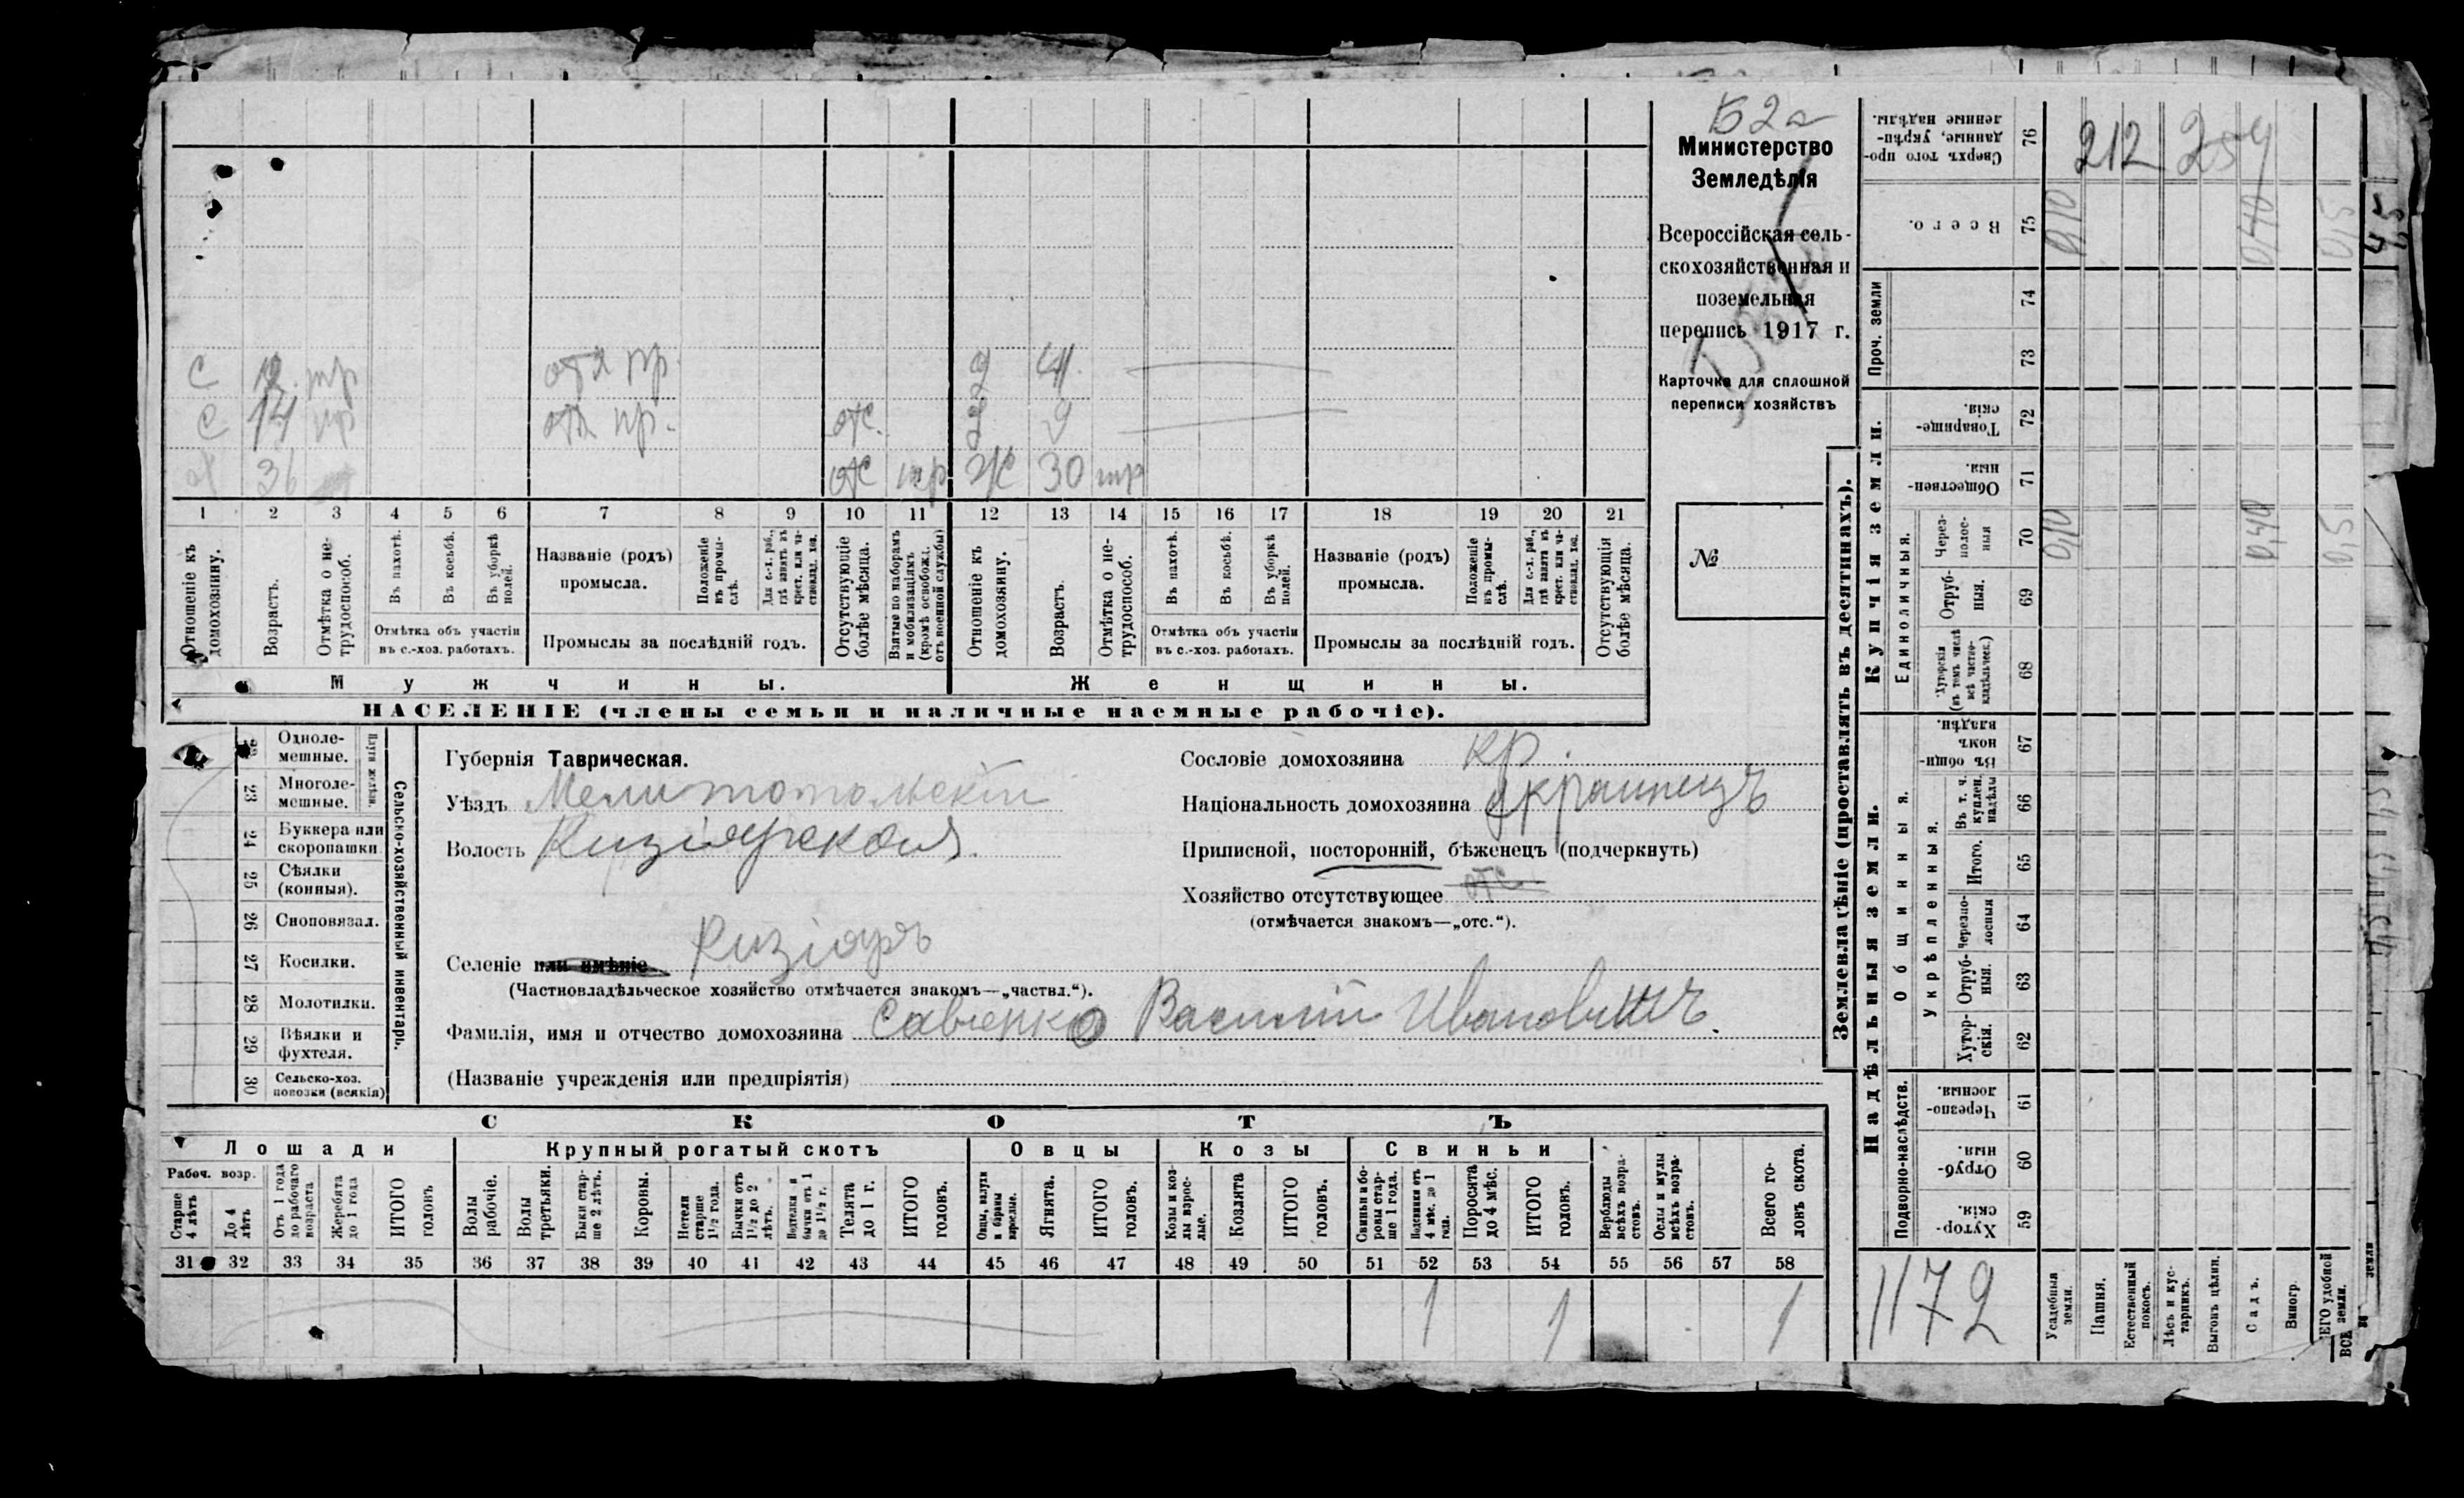 Б2а
Министерство
Земледѣлія
Всероссійская сель-
скохозяйственная и
поземельная
перепись 1917 г.
Карточка для сплошной
переписи хозяйствъ
№
С 12
С 14 пр. отс. Д 9
36 отс Ж 30
1 2 3 4 5 6 7 8 9 10 11 12 13 14 15 16 17 18 19 20 21
Отношеніе къ домохозяину.
Возрастъ.
Отмѣтка о не-трудоспособ.
Въ пахотѣ.
Въ косьбѣ.
Въ уборкѣ полей.
Отмѣтка объ участіи
въ с.-хоз. работахъ.
Названіе (родъ)
промысла.
Положеніе въ промы-слѣ.
Для с.-х. раб., гдѣ занятъ въ крест. или ча-стновлад. хоз.
Промыслы за послѣдній годъ.
Отсутствующіе болѣе мѣсяца.
Взятые по наборамъ и мобилизаціямъ (кромѣ освобожд. отъ военной службы)
Отношеніе къ домохозяину.
Возрастъ.
Отмѣтка о не-трудоспособ.
Въ пахотѣ.
Въ косьбѣ.
Въ уборкѣ полей.
Отмѣтка объ участіи
въ с.-хоз. работахъ.
Названіе (родъ)
промысла.
Положеніе въ промы-слѣ.
Для с.-х. раб., гдѣ занятъ въ крест. или ча-стновлад. хоз.
Промыслы за послѣдній годъ.
Отсутствующія болѣе мѣсяца.
Мужчины.
Женщины.
НАСЕЛЕНІЕ (члены семьи и наличные наемные рабочіе).
Сельско-хозяйственный инвентарь.
Плуги желѣзн.
Одноле-мешные.
23 Многоле-мешные.
24 Буккера или скоропашки
25 Сѣялки (конныя).
26 Сноповязал.
27 Косилки.
28 Молотилки.
29 Вѣялки и фухтеля.
30 Сельско-хоз. повозки (всякія)
Губернія Таврическая.
Уѣздъ Мелитопольскій
Волость Кизіярская.
Селеніе или имѣніе Кизіяръ
(Частновладѣльческое хозяйство отмѣчается знакомъ—„частвл.“).
Фамилія, имя и отчество домохозяина Савченко Василій Ивановичъ.
(Названіе учрежденія или предпріятія)
Сословіе домохозяина кр.
Національность домохозяина Украинецъ
Приписной, посторонній, бѣженецъ (подчеркнуть)
Хозяйство отсутствующее отс
(отмѣчается знакомъ—„отс.“).
СКОТЪ
Лошади
Рабоч. возр.
Старше 4 лѣтъ
До 4 лѣтъ
Отъ 1 года до рабочаго возраста
Жеребята до 1 года
ИТОГО головъ
Крупный рогатый скотъ
Волы рабочіе.
Волы третьяки.
Быки стар-ше 2 лѣтъ.
Коровы.
Нетели старше 1½ года.
Бычки отъ 1½ до 2 лѣтъ.
Подтелки и бычки отъ 1 до 1½ г.
Телята до 1 г.
ИТОГО головъ.
Овцы
Овцы, валухи и бараны взрослые.
Ягнята.
ИТОГО головъ.
Козы
Козы и коз-лы взрос-лые.
Козлята
ИТОГО головъ.
Свиньи
Свиньи и бо-ровы стар-ше 1 года.
Подсвинки отъ 4 мѣс. до 1 года.
Поросята до 4 мѣс.
ИТОГО головъ.
Верблюды всѣхъ возра-стовъ.
Ослы и мулы всѣхъ возра-стовъ.
Всего го-ловъ скота.
31 32 33 34 35 36 37 38 39 40 41 42 43 44 45 46 47 48 49 50 51 52 53 54 55 56 57 58
1 1 1
Землевладѣніе (проставлять въ десятинахъ).
Купчія земли.
Проч. земли
Единоличныя.
Сверхъ того про-данные, укрѣп-ленные надѣлы.
76
212 254
Всего.
75
0,10 0,40 0,5
74
73
Товарище-скія.
72
Обществен-ныя.
71
Через-полос-ныя
70
0,10 0,40 0,5
Отруб-ныя.
69
Хуторскія (въ томъ числѣ всѣ частно-владѣльческ.)
68
Надѣльныя земли.
Общинныя.
Укрѣпленныя.
Въ общин-номъ владѣн.
67
Въ т. ч. куплен. надѣлы
66
Итого.
65
Черезпо-лосныя
64
Отруб-ныя.
63
Хутор-скія.
62
Подворно-наслѣдств.
Черезпо-лосныя.
61
Отруб-ныя.
60
Хутор-скія.
59
1172
Усадебныя земли.
Пашня.
Естественный покосъ.
Лѣсъ и кус-тарникъ.
Выгонъ цѣлин.
Садъ.
Виногр.
ВСЕГО удобной земли.